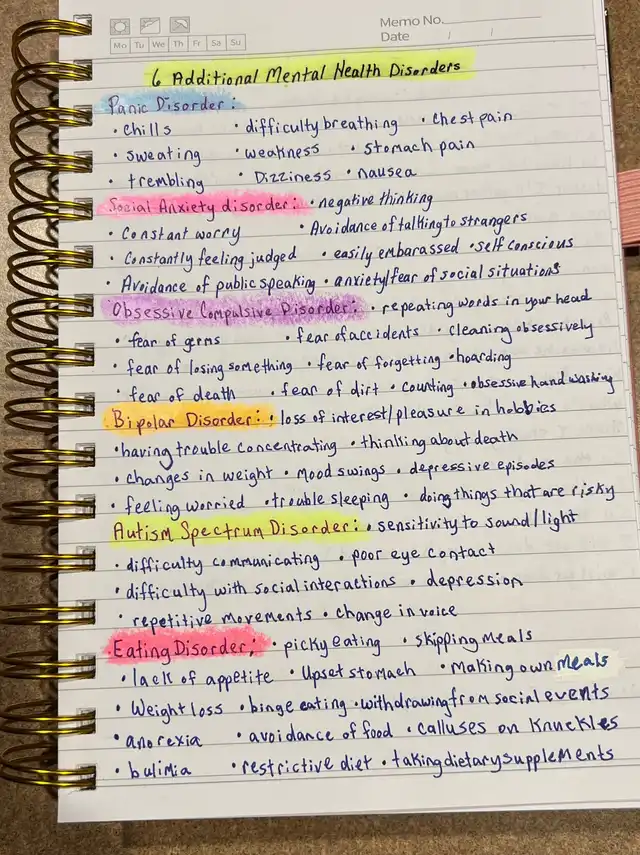 Memo No.
Date / /
Mo Tu We Th Fr Sa Su
6 Additional Mental Health Disorders
Panic Disorder:
• chills • difficulty breathing • chest pain
• sweating • weakness • stomach pain
• trembling • Dizziness • nausea
Social Anxiety disorder: • negative thinking
• Constant worry • Avoidance of talking to strangers
• Constantly feeling judged • easily embarassed • self conscious
• Avoidance of public speaking • anxiety/fear of social situations
Obsessive Compulsive Disorder: • repeating words in your head
• fear of germs • fear of accidents • cleaning obsessively
• fear of losing something • fear of forgetting • hoarding
• fear of death • fear of dirt • counting • obsessive hand washing
Bipolar Disorder: • loss of interest/pleasure in hobbies
• having trouble concentrating • thinking about death
• changes in weight • Mood swings • depressive episodes
• feeling worried • trouble sleeping • doing things that are risky
Autism Spectrum Disorder: • sensitivity to sound/light
• difficulty communicating • poor eye contact
• difficulty with social interactions • depression
• repetitive movements • change in voice
Eating Disorder; • picky eating • skipping Meals
• lack of appetite • Upset stomach • Making own meals
• Weight loss • binge eating • withdrawing from social events
• anorexia • avoidance of food • calluses on Knuckles
• bulimia • restrictive diet • taking dietary supplements